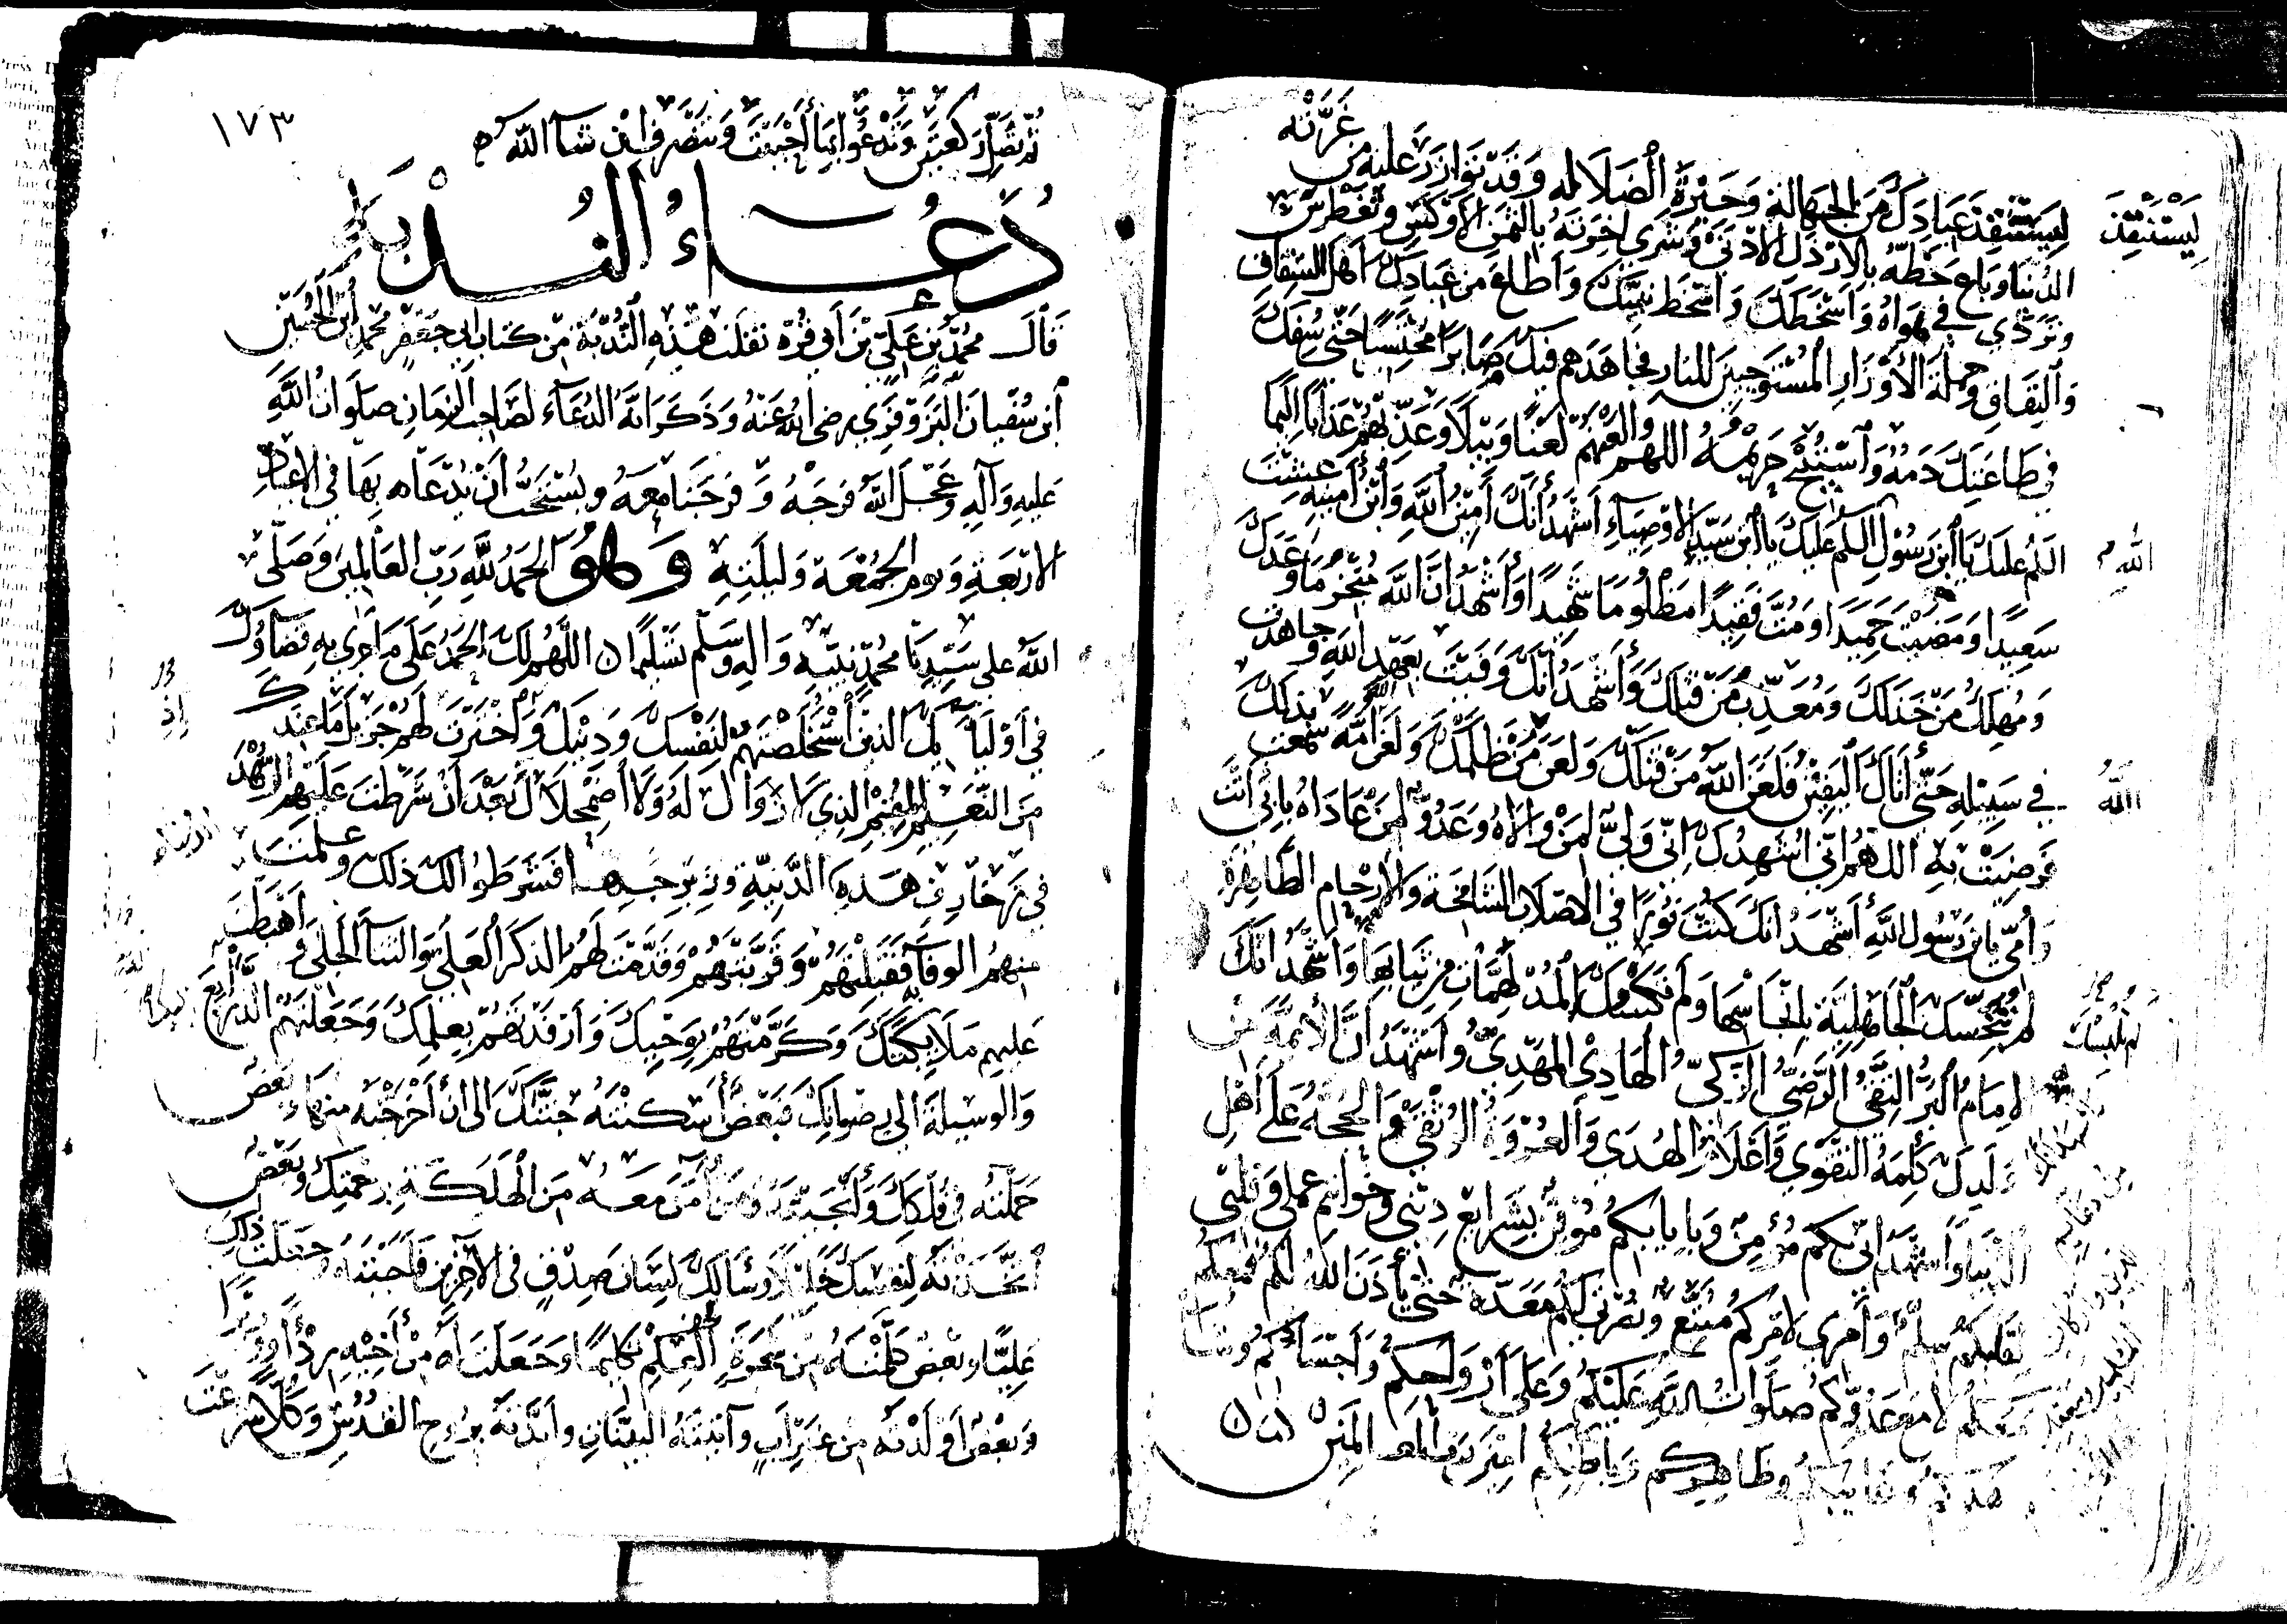 ليستنقذ عبادك من الجهالة وحيرة الضلاله وقد توازر عليه من غرته
ليستنقذ
الدنيا وباع حظه بالارذل الادنى وشرى اخرته بالثمن الاوكس وتغطرس
وتردى في هواه واسخطك واسخط نبيك واطاع من عبادك اهل الشقاق
والنفاق وحملة الاوزار المستوجبين للنار فجاهدهم فيك صابرا محتسبا حتى سفك
في طاعتك دمه واستبيح حريمه اللهم والعنهم لعنا وبيلا وعذبهم عذابا اليما
السلم عليك يا ابن رسول السلم عليك يا ابن سيد الاوصياء اشهد انك امين الله وابن امينه عشت
الله
سعيدا ومضيت حميدا ومت فقيدا مظلوما شهيدا واشهد ان الله منجز ما وعدك
ومهلك من خذلك ومعذب من قتلك واشهد انك وفيت بعهد الله وجاهدت
في سبيله حتى اتاك اليقين فلعن الله من قتلك ولعن من ظلمك ولعن الله امة سمعت بذلك
الله
فرضيت به اللهم اني اشهدك اني ولي لمن والاه وعدو لمن عاداه بابي انت
وامي يابن رسول الله اشهد انك كنت نورا في الاصلاب الشامخة والارحام الطاهرة
لم تنجسك الجاهلية بانجاسها ولم تكسك المدلهمات من ثيابها واشهد انك
لم تلبسك
الامام البر التقي الرضي الزكي الهادي المهدي واشهد ان الائمة من
ولدك كلمة التقوى واعلام الهدى والعروة الوثقى والحجة على اهل
الدنيا واشهد اني بكم مؤمن وبايابكم موقن بشرايع ديني وخواتيم عملي وقلبي
لقلبكم سلم وامري لامركم متبع ونصرتي لكم معدة حتى يأذن الله لكم فمعكم
معكم لا مع عدوكم صلوات الله عليكم وعلى ارواحكم واجسادكم
وغايبكم وظاهركم وباطنكم امين رب العالمين
١٧٣
ثم تصلي ركعتين وتدعو بما احببت وتنصرف ان شآ الله
دعاء الندبة
قال محمد بن علي بن أبي قرة نقلت هذه الندبة من كتاب ابي جعفر محمد ابن الحسين
ابن سفيان البزوفري رضي الله عنه وذكر انه الدعآء لصاحب الزمان صلوات الله
عليه وآله وعجل الله فرجه وفرجنا معه ويستحب ان يدعا به في الاعياد
الاربعة ويوم الجمعة وليلته وهو الحمد لله رب العالمين وصلى
الله على سيدنا محمد نبيه واله وسلم تسليما اللهم لك الحمد على ما جرى به قضآؤك
في اوليائك الذين استخلصتهم لنفسك ودينك واخترت لهم جزيل ما عندك
اذ
من النعيم المقيم الذي لا زوال له ولا اضمحلال بعد ان شرطت عليهم الزهد
في زخارف هذه الدنية وزبرجها فشرطوا لك ذلك وعلمت
منهم الوفآ فقبلتهم وقربتهم وقدمت لهم الذكر العلي والثنآ الجلي واهبطت
عليهم ملايكتك وكرمتهم بوحيك وارفدتهم بعلمك وجعلتهم الذرايع
والوسيلة الى رضوانك فبعض أسكنته جنتك الى ان أخرجته منها وبعض
حملته في فلكك وأنجيته ومن آمن معه من الهلكة برحمتك وبعض
اتخذته لنفسك خليلا وسالك لسان صدق في الآخرين فاجبته وجعلت ذلك
عليا وبعض كلمته من شجرة تكليما وجعلت له من أخيه ردأ ووزيرا
وبعض أولدته من غير أب وآتيته البينات وأيدته بروح القدس وكلا شرعت